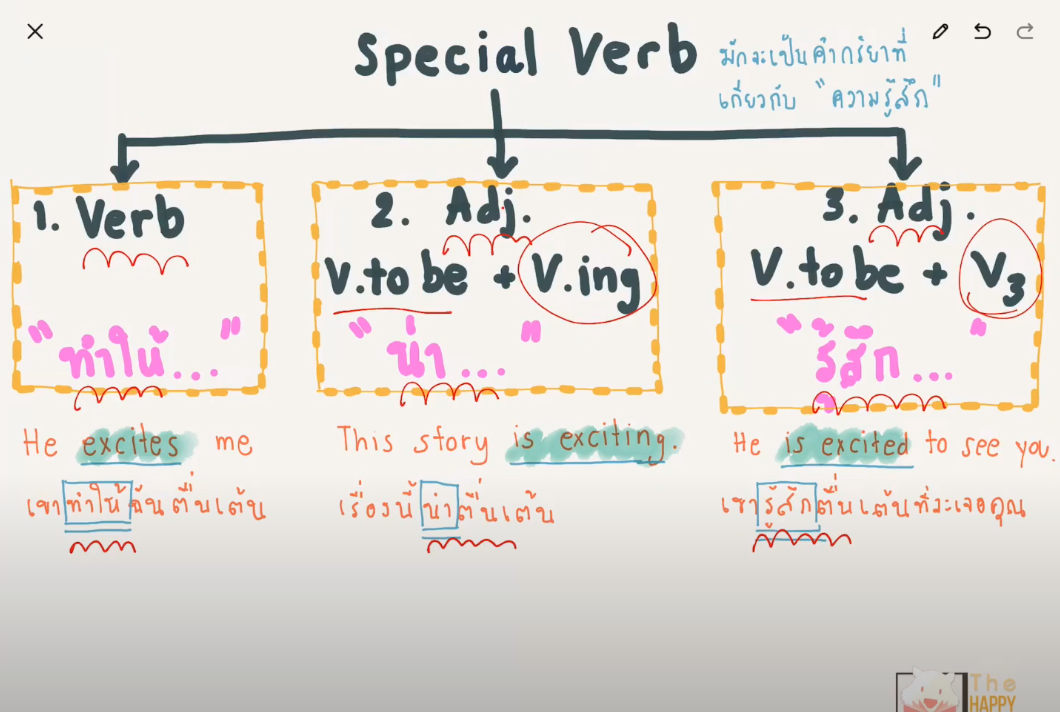 Special Verb
มักจะเป็นคำกริยาที่
เกี่ยวกับ "ความรู้สึก"
1. Verb
"ทำให้..."
He excites me
เขาทำให้ฉันตื่นเต้น
2. Adj.
V.to be + V.ing
"น่า..."
This story is exciting.
เรื่องนี้น่าตื่นเต้น
3. Adj.
V.to be + V3
"รู้สึก..."
He is excited to see you.
เขารู้สึกตื่นเต้นที่จะเจอคุณ
The
HAPPY